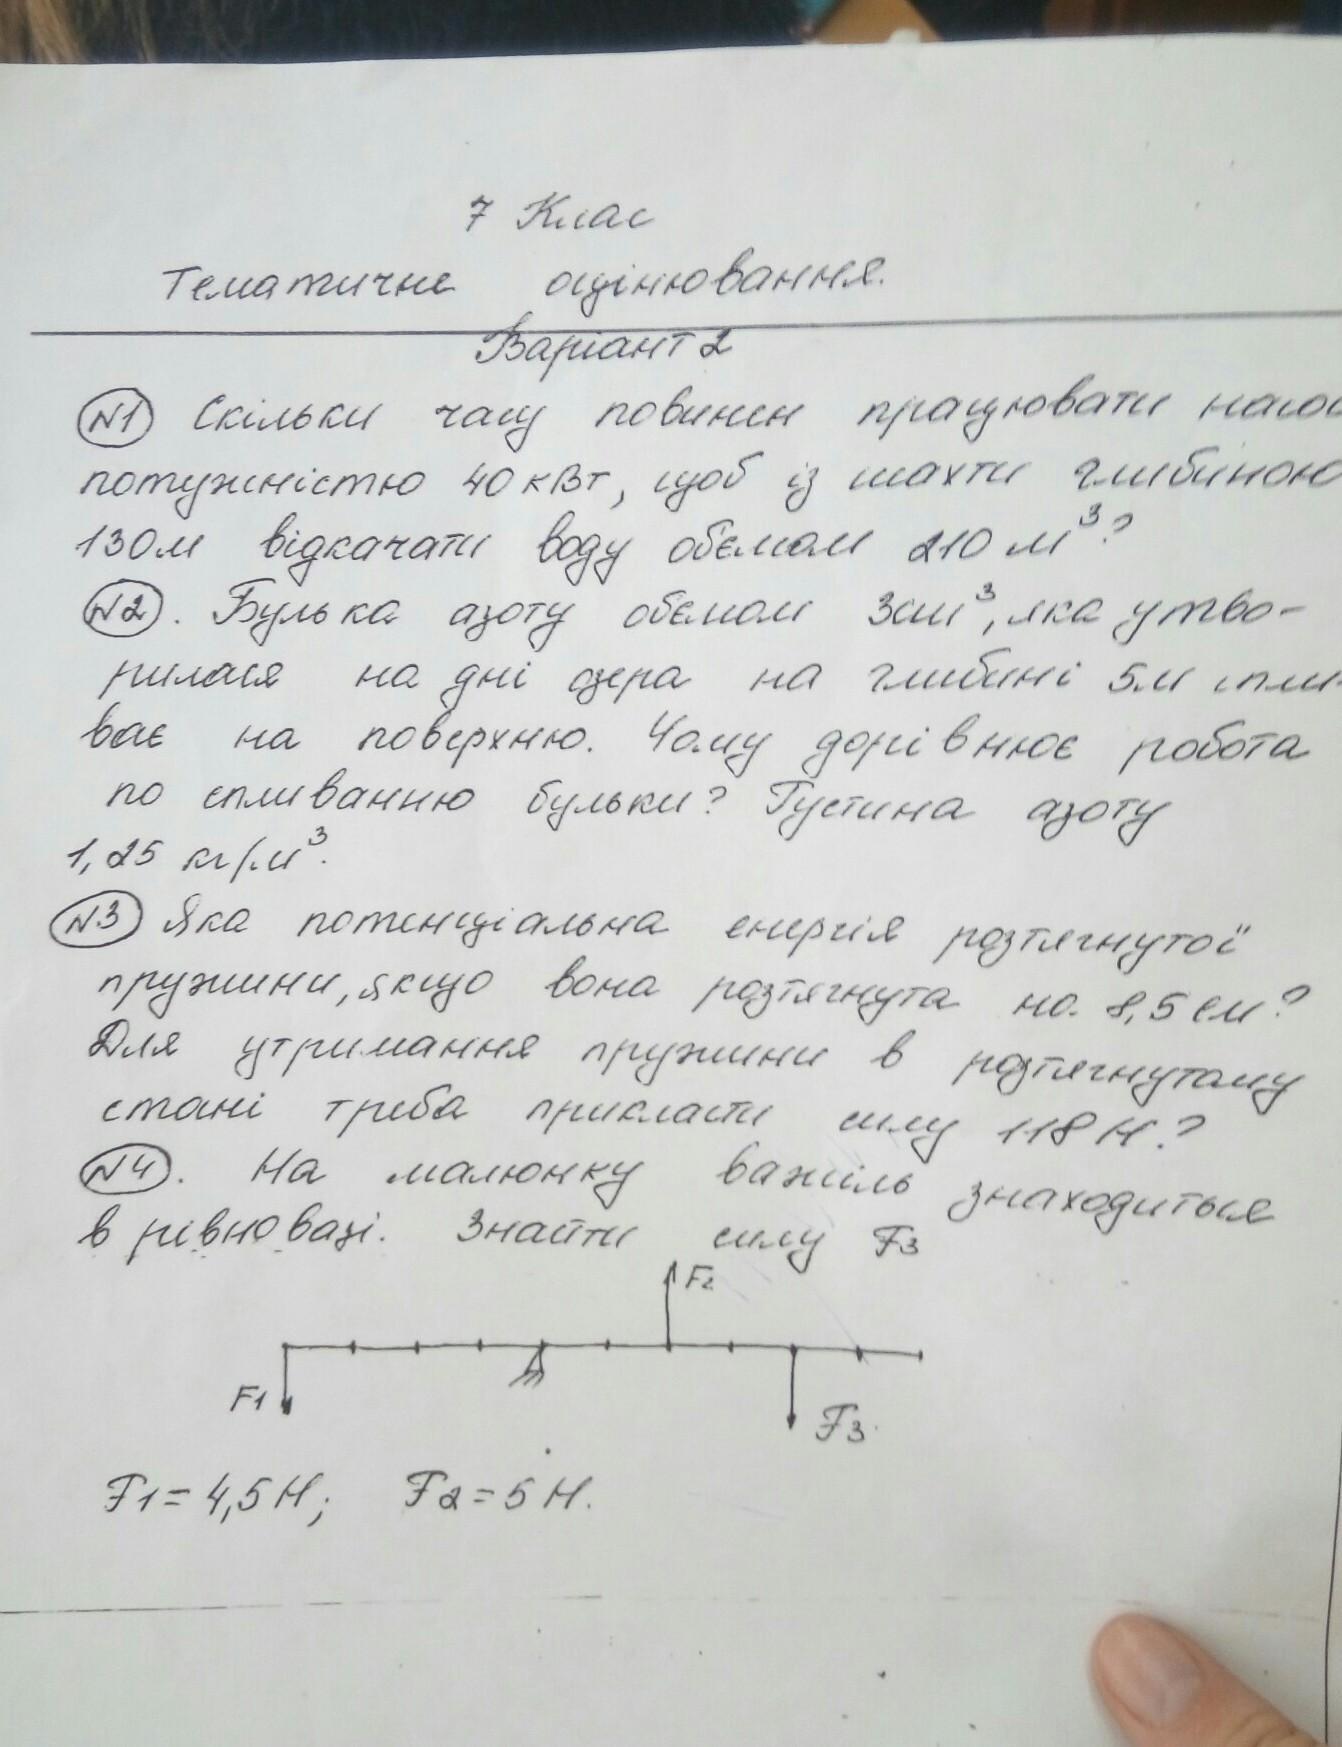 7 Клас
Тематичне оцінювання.
Варіант 2
N1 Скільки часу повинен працювати
потужністю 40 кВт, щоб із шахти глибиною
130м відкачати воду обємом 210 м³?
N2. Булька азоту обємом 3см³, яка утво-
рилася на дні озера на глибині 5м спли-
ває на поверхню. Чому дорівнює робота
по спливанню бульки? Густина азоту
1,25 кг/м³.
N3 Яка потенціальна енергія розтягнутої
пружини, якщо вона розтягнута на 8,5 см?
Для утримання пружини в розтягнутому
стані треба прикласти силу 118 Н?
N4. На малюнку важіль знаходиться
в рівновазі. Знайти силу F3
F2
F1
F3
F1 = 4,5 Н; F2 = 5 Н.